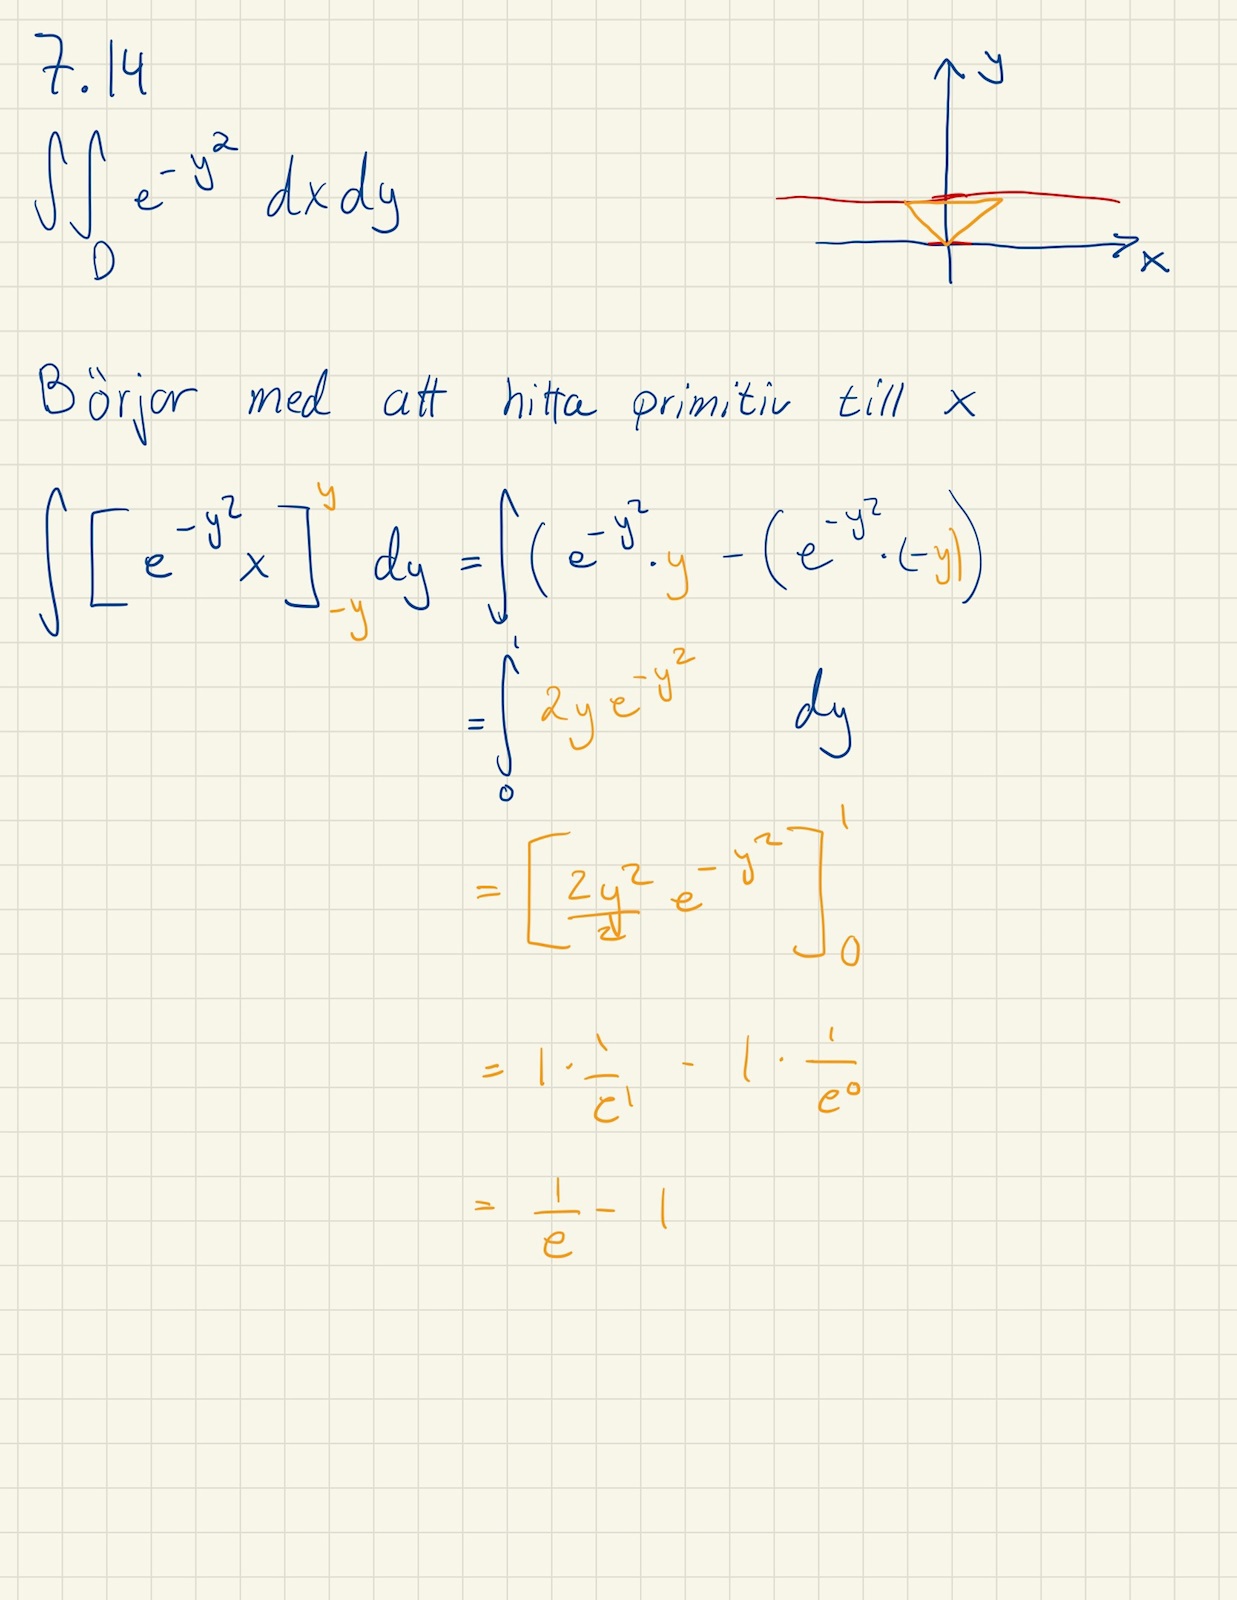 7.14
y
∬_D e^{-y^2} dxdy
x
Börjar med att hitta primitiv till x
∫ [e^{-y^2} x]_{-y}^{y} dy = ∫ (e^{-y^2} · y - (e^{-y^2} · (-y))
= ∫_0^1 2y e^{-y^2} dy
= [\frac{2y^2}{2} e^{-y^2}]_0^1
= 1 · \frac{1}{e^1} - 1 · \frac{1}{e^0}
= \frac{1}{e} - 1